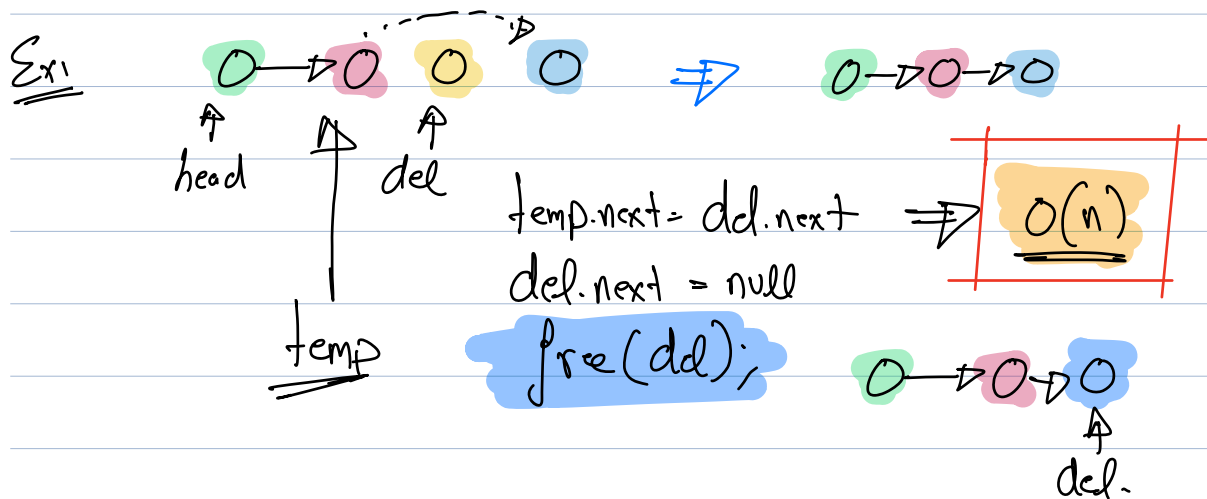 Ex1
head
del
temp.next = del.next
O(n)
del.next = null
temp
free(del);
del.